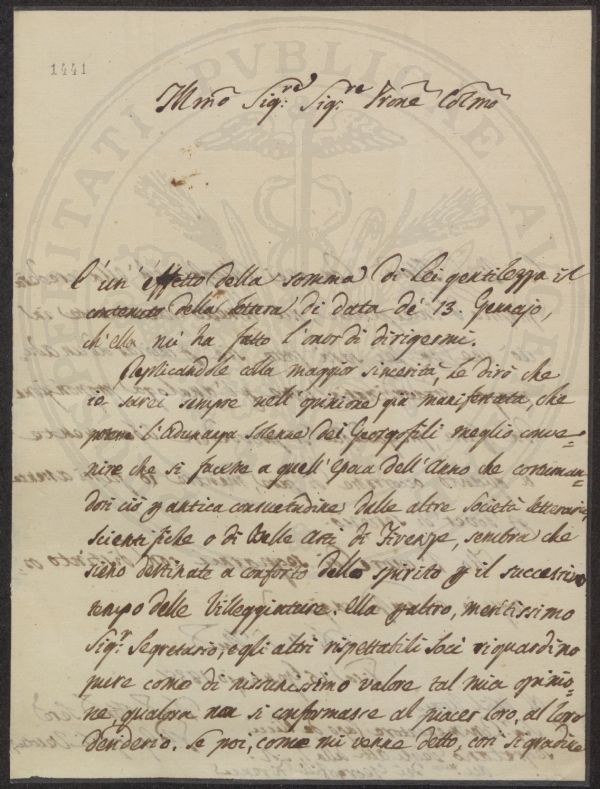 1441
PROSPERITATI PVBLICAE AVGENDAE
Illmo Sig.re Sig.re Prone Colmo
È un' effetto della somma di lei gentilezza il
contenuto della lettera di data de' 13. Gennajo,
ch'ella mi ha fatto l'onor di dirigermi.
Replicandole colla maggior sincerità, le dirò che
io sarei sempre nell'opinione già manifestata, che
l'Adunanza Solenne dei Georgofili meglio conve-
nire che si facesse a quell'epoca dell'Anno che coronan-
dosi ciò p antica consuetudine dalle altre Società letterarie,
scientifiche o di belle Arti di Firenze, sembra che
sieno destinate a conforto dello spirito p il successivo
tempo delle Villeggiature. Ella p altro, meritissimo
Sig.r Segretario, e gli altri rispettabili Soci riguardino
pure come di nissunissimo valore tal mia opinio-
ne, qualora non si conformasse al piacer loro, al loro
desiderio. Se poi, come mi venne detto, così si gradisse